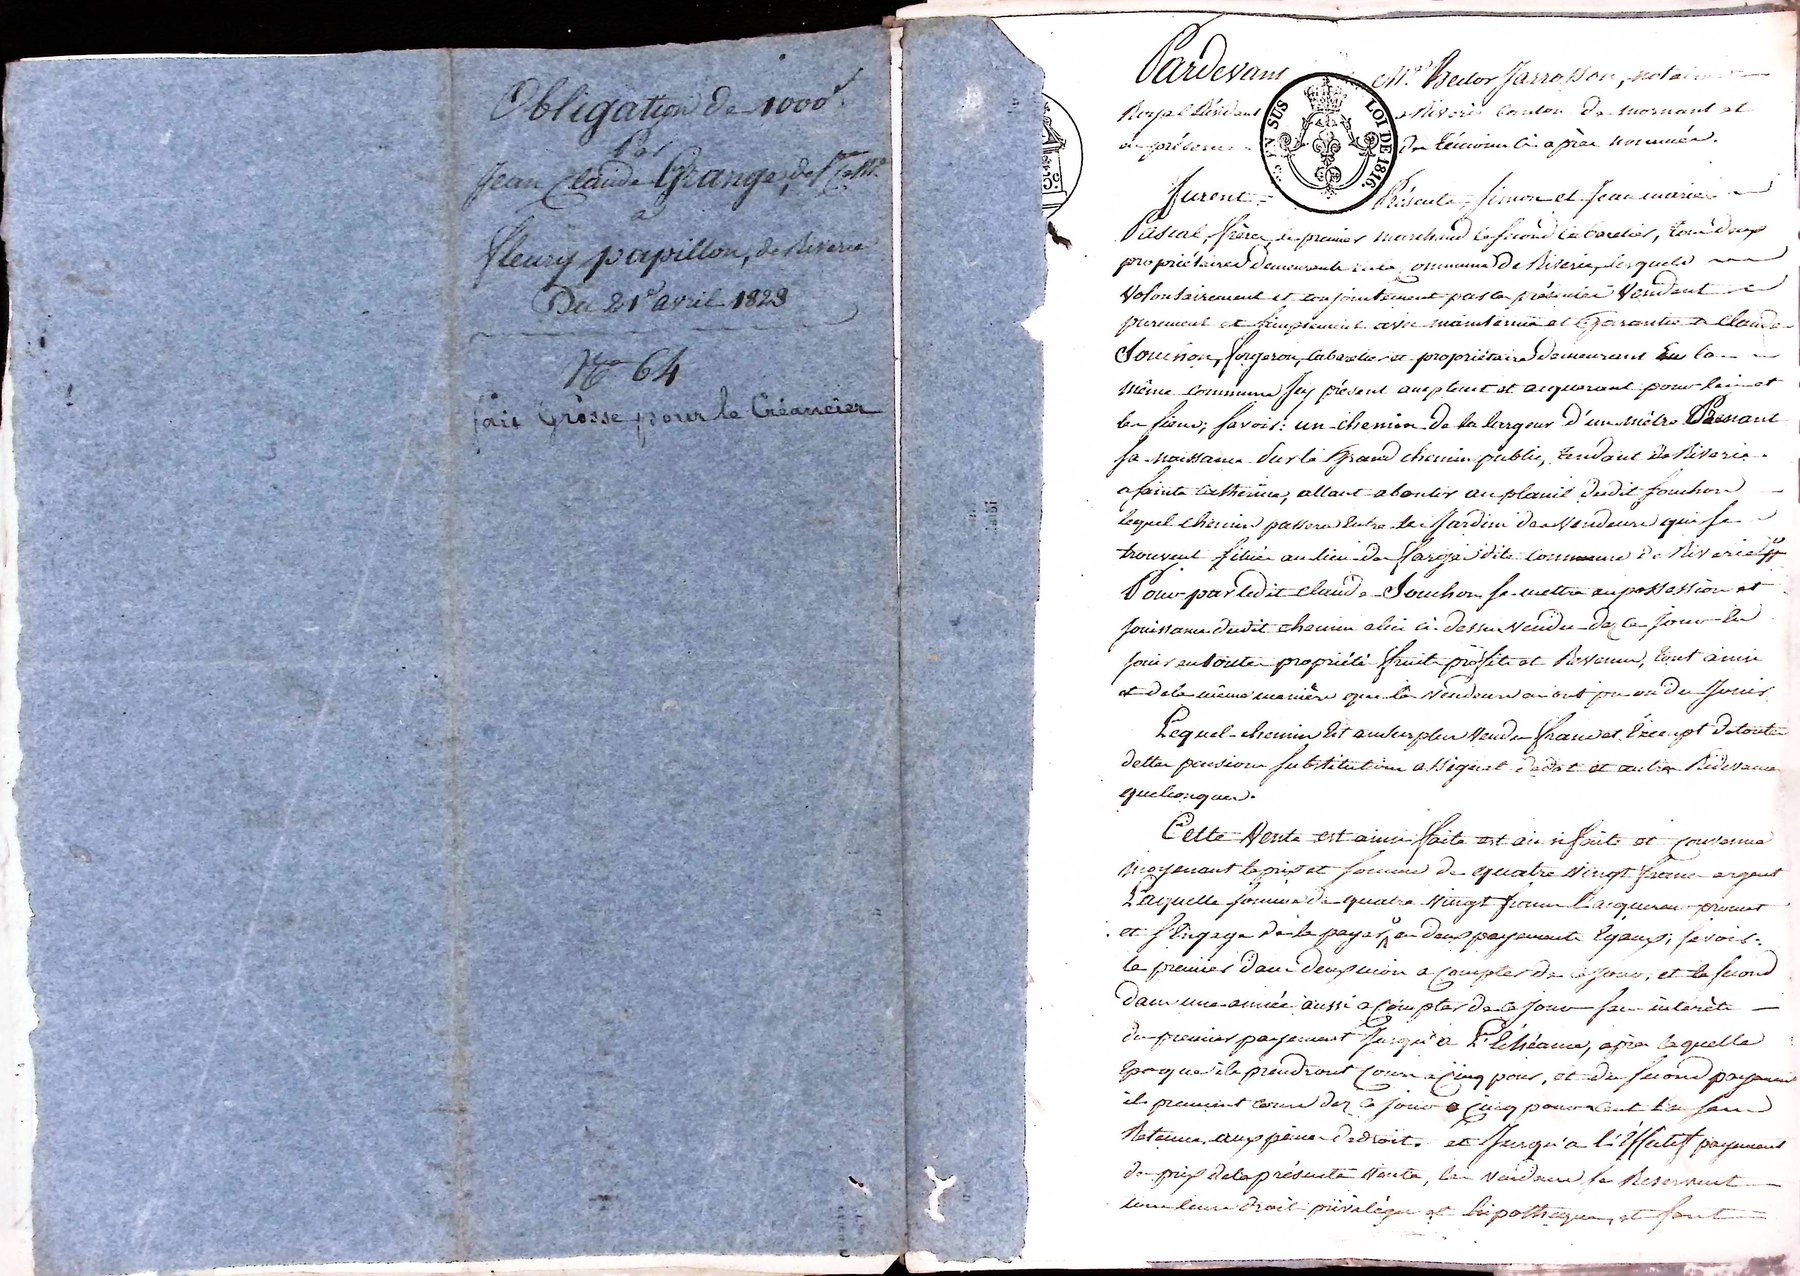 Obligation de 1000f.
Par
Jean Claude Grange, de Ste Cathe.
a
fleury papillon, de Riverie
Du 21e avril 1823
No 64
fait Grosse pour le Créancier
Pardevant Me. Hector Jarrosson, notaire
Royal Résident a Riverie canton de mornant et
en présence des témoins ci après nommés.
EN SUS LOI DE 1816.
furent Présents, Simon et Jean marie
Pascal, frères, le premier marchand le second cabaretier, tous deux
propriétaires demeurants en la Commune de Riverie, lesquels
volontairement et conjointement par les présentes vendent
purement et simplement avec maintenue et Garantie a Claude
Souchon, forgeron, cabaretier et propriétaire demeurant En la
même commune Icy présent acceptant et acquerant pour lui et
les siens; savoir: un chemin de la largeur d'un mètre Prenant
sa naissance sur le Grand chemin public, tendant de Riverie
a sainte Catherine, allant aboutir au dudit Souchon
lequel chemin passera Entre les Jardins des vendeurs qui se
trouvent situés au lieu de dite commune de Riverie
Pour par ledit Claude Souchon se mettre en possession et
jouissance dudit chemin a lui ci-dessus vendu dez ce jour En
jouir en toute propriété fruits profits et Revenus, tout ainsi
et de la même manière que les vendeurs en ont pu ou du Jouir
Lequel chemin Est au surplus vendu franc et Exempt de toutes
dettes pensions substitution assignat de dot et autres Redevances
quelconques.
Cette Vente est ainsi faite est ainsi faite et convenue
moyenant le prix et somme de quatre vingt francs argent
Laquelle somme de quatre vingt francs l'acquereur promet
et s'Engage de la payer, en deux payements Egaux; savoir:
le premier dans deux mois a compter de ce jour, et le second
dans une année aussi a compter de ce jour sans intérêts
du premier payement Jusqu'a L'Echéance, après laquelle
Epoque ils prendront cours a cinq pour, et du second payement
ils prennent cours dez ce jour a cinq pour cent L'an sans
Retenue, aux peines de droit. et Jusqu'a l'Effectif payement
du prix de la présente vente, les vendeurs se Reservent
tous leurs droits privilèges et hipothèques, et font